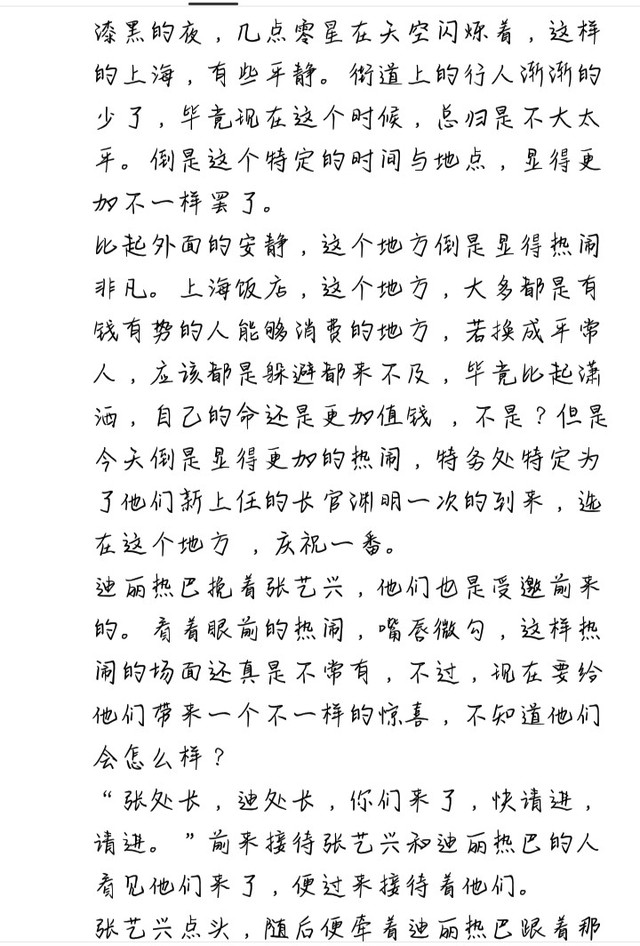 漆黑的夜，几点零星在天空闪烁着，这样
的上海，有些平静。街道上的行人渐渐的
少了，毕竟现在这个时候，总归是不大太
平。倒是这个特定的时间与地点，显得更
加不一样罢了。
比起外面的安静，这个地方倒是显得热闹
非凡。上海饭店，这个地方，大多都是有
钱有势的人能够消费的地方，若换成平常
人，应该都是躲避都来不及，毕竟比起潇
洒，自己的命还是更加值钱 ，不是？但是
今天倒是显得更加的热闹，特务处特定为
了他们新上任的长官渊明一次的到来，选
在这个地方 ，庆祝一番。
迪丽热巴挽着张艺兴，他们也是受邀前来
的。看着眼前的热闹，嘴唇微勾，这样热
闹的场面还真是不常有，不过，现在要给
他们带来一个不一样的惊喜，不知道他们
会怎么样？
“张处长，迪处长，你们来了，快请进，
请进。”前来接待张艺兴和迪丽热巴的人
看见他们来了，便过来接待着他们。
张艺兴点头，随后便牵着迪丽热巴跟着那